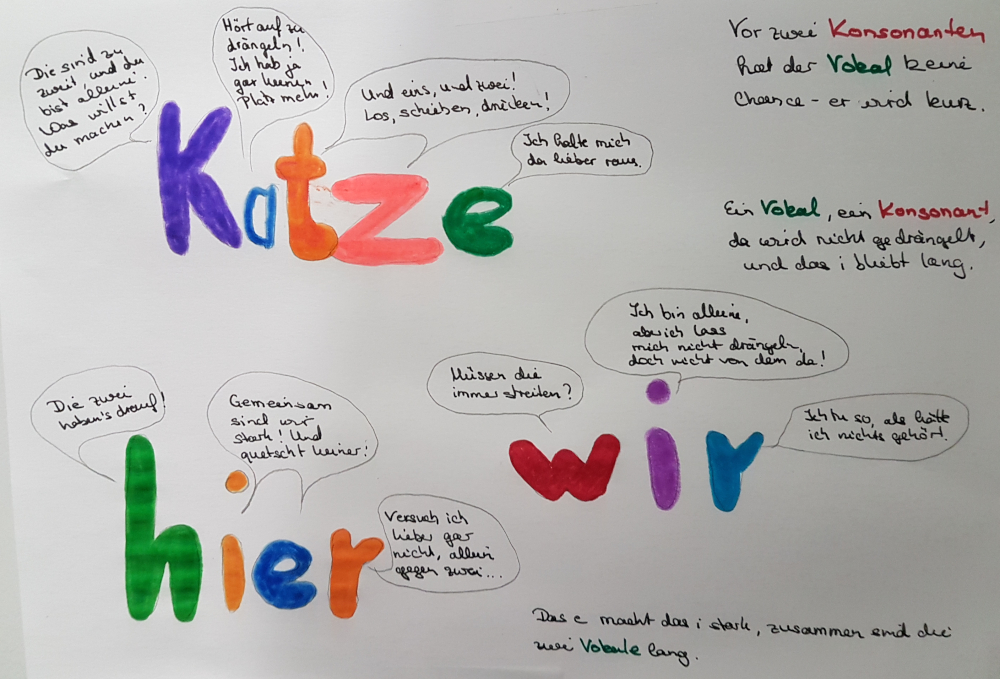 Die sind zu
zweit und du
bist alleine.
Was willst
du machen?
Hört auf zu
drängeln!
Ich hab ja
gar keinen
Platz mehr!
Und eins, und zwei!
Los, schieben, drücken!
Ich halte mich
da lieber raus.
Katze
Vor zwei Konsonanten
hat der Vokal keine
Chance - er wird kurz.
Ein Vokal, ein Konsonant,
da wird nicht gedrängelt,
und das i bleibt lang.
Die zwei
haben's drauf!
Gemeinsam
sind wir
stark! Und
quetscht keiner!
Versuch ich
lieber gar
nicht, allein
gegen zwei...
hier
Müssen die
immer streiten?
Ich bin alleine,
aber ich lass
mich nicht drängeln,
doch nicht von dem da!
Ich tu so, als hätte
ich nichts gehört.
wir
Das e macht das i stark, zusammen sind die
zwei Vokale lang.